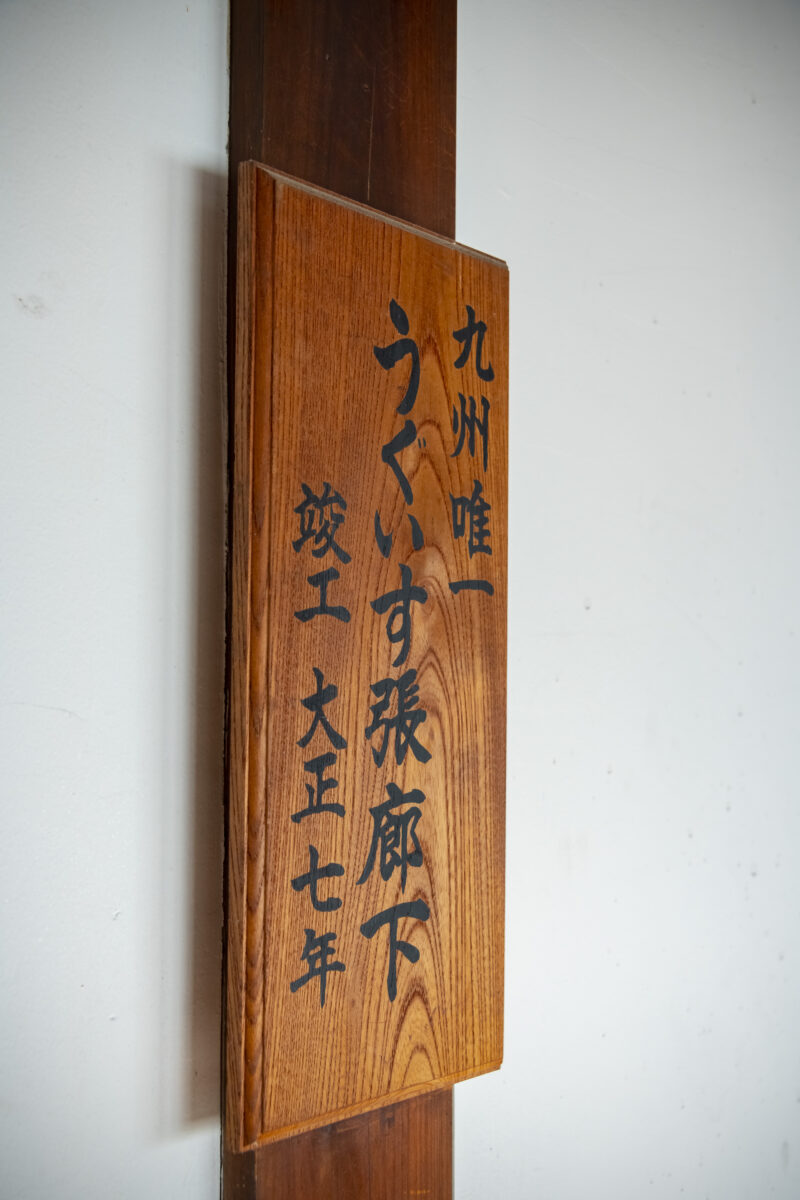 九州唯一
うぐいす張廊下
竣工 大正七年